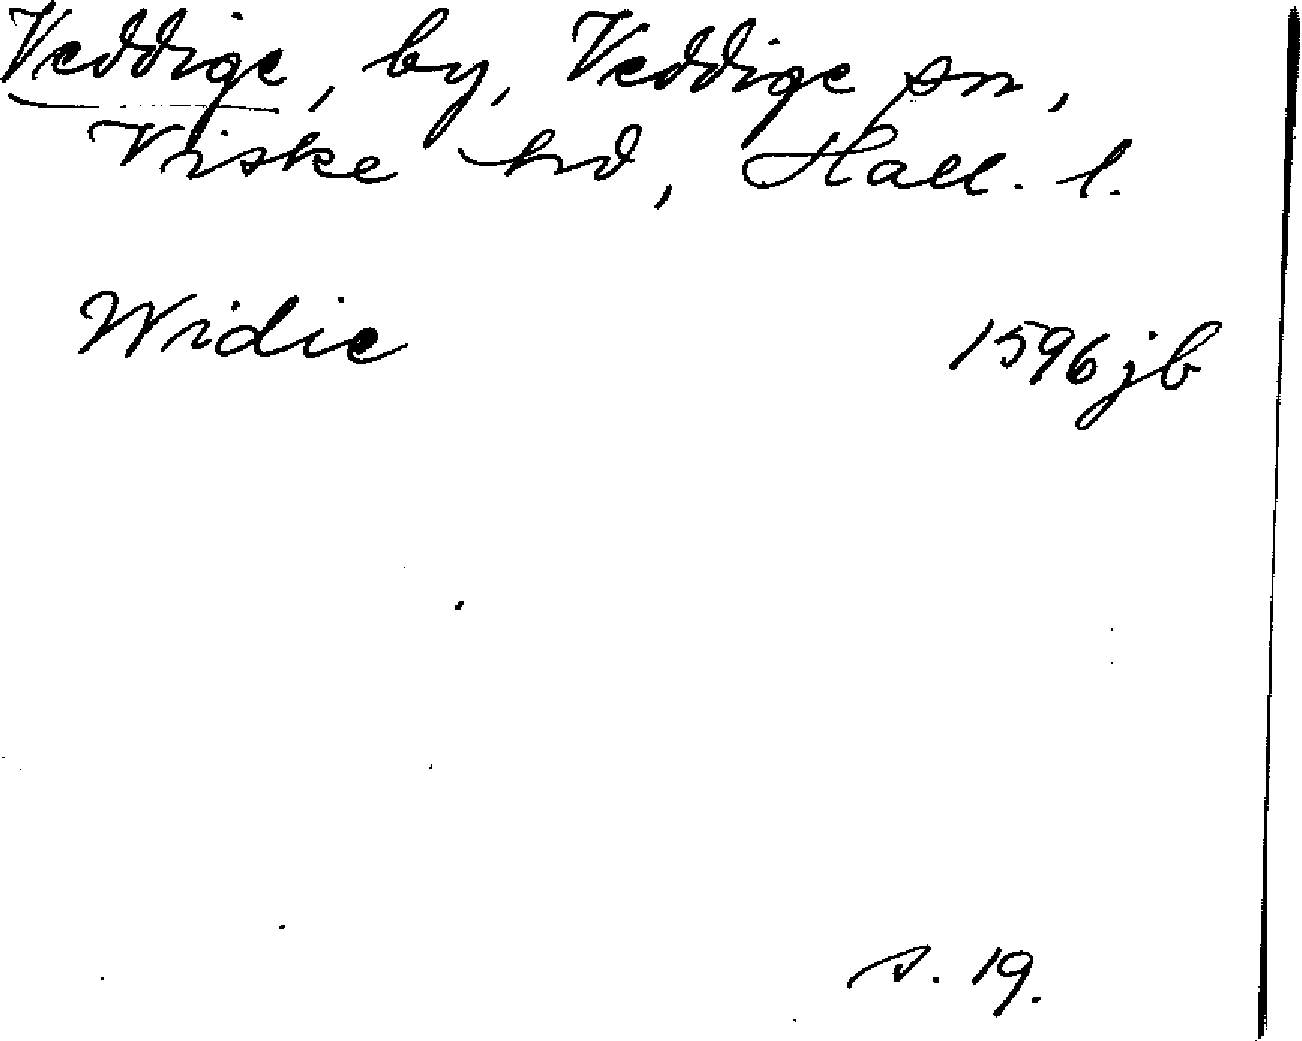 Veddige, by, Veddige sn,
Viske hd, Hall. l.
Widie 1596 jb
s. 19.